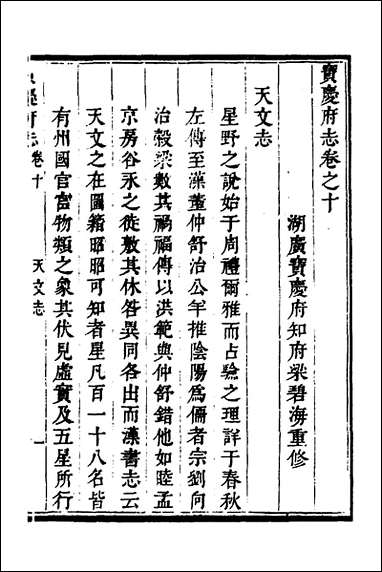 寶慶府志卷之十
湖廣寶慶府知府梁碧海重修
天文志
星野之說始于周禮爾雅而占驗之理詳于春秋
左傳至漢董仲舒治公羊推陰陽為儒者宗劉向
治穀梁數其禍福傳以洪範與仲舒錯他如眭孟
京房谷永之徒數其休咎異同各出而漢書志云
天文之在圖籍昭昭可知者星凡百一十八名皆
有州國官宮物類之象其伏見虛實及五星所行
府志 卷十 天文志 一